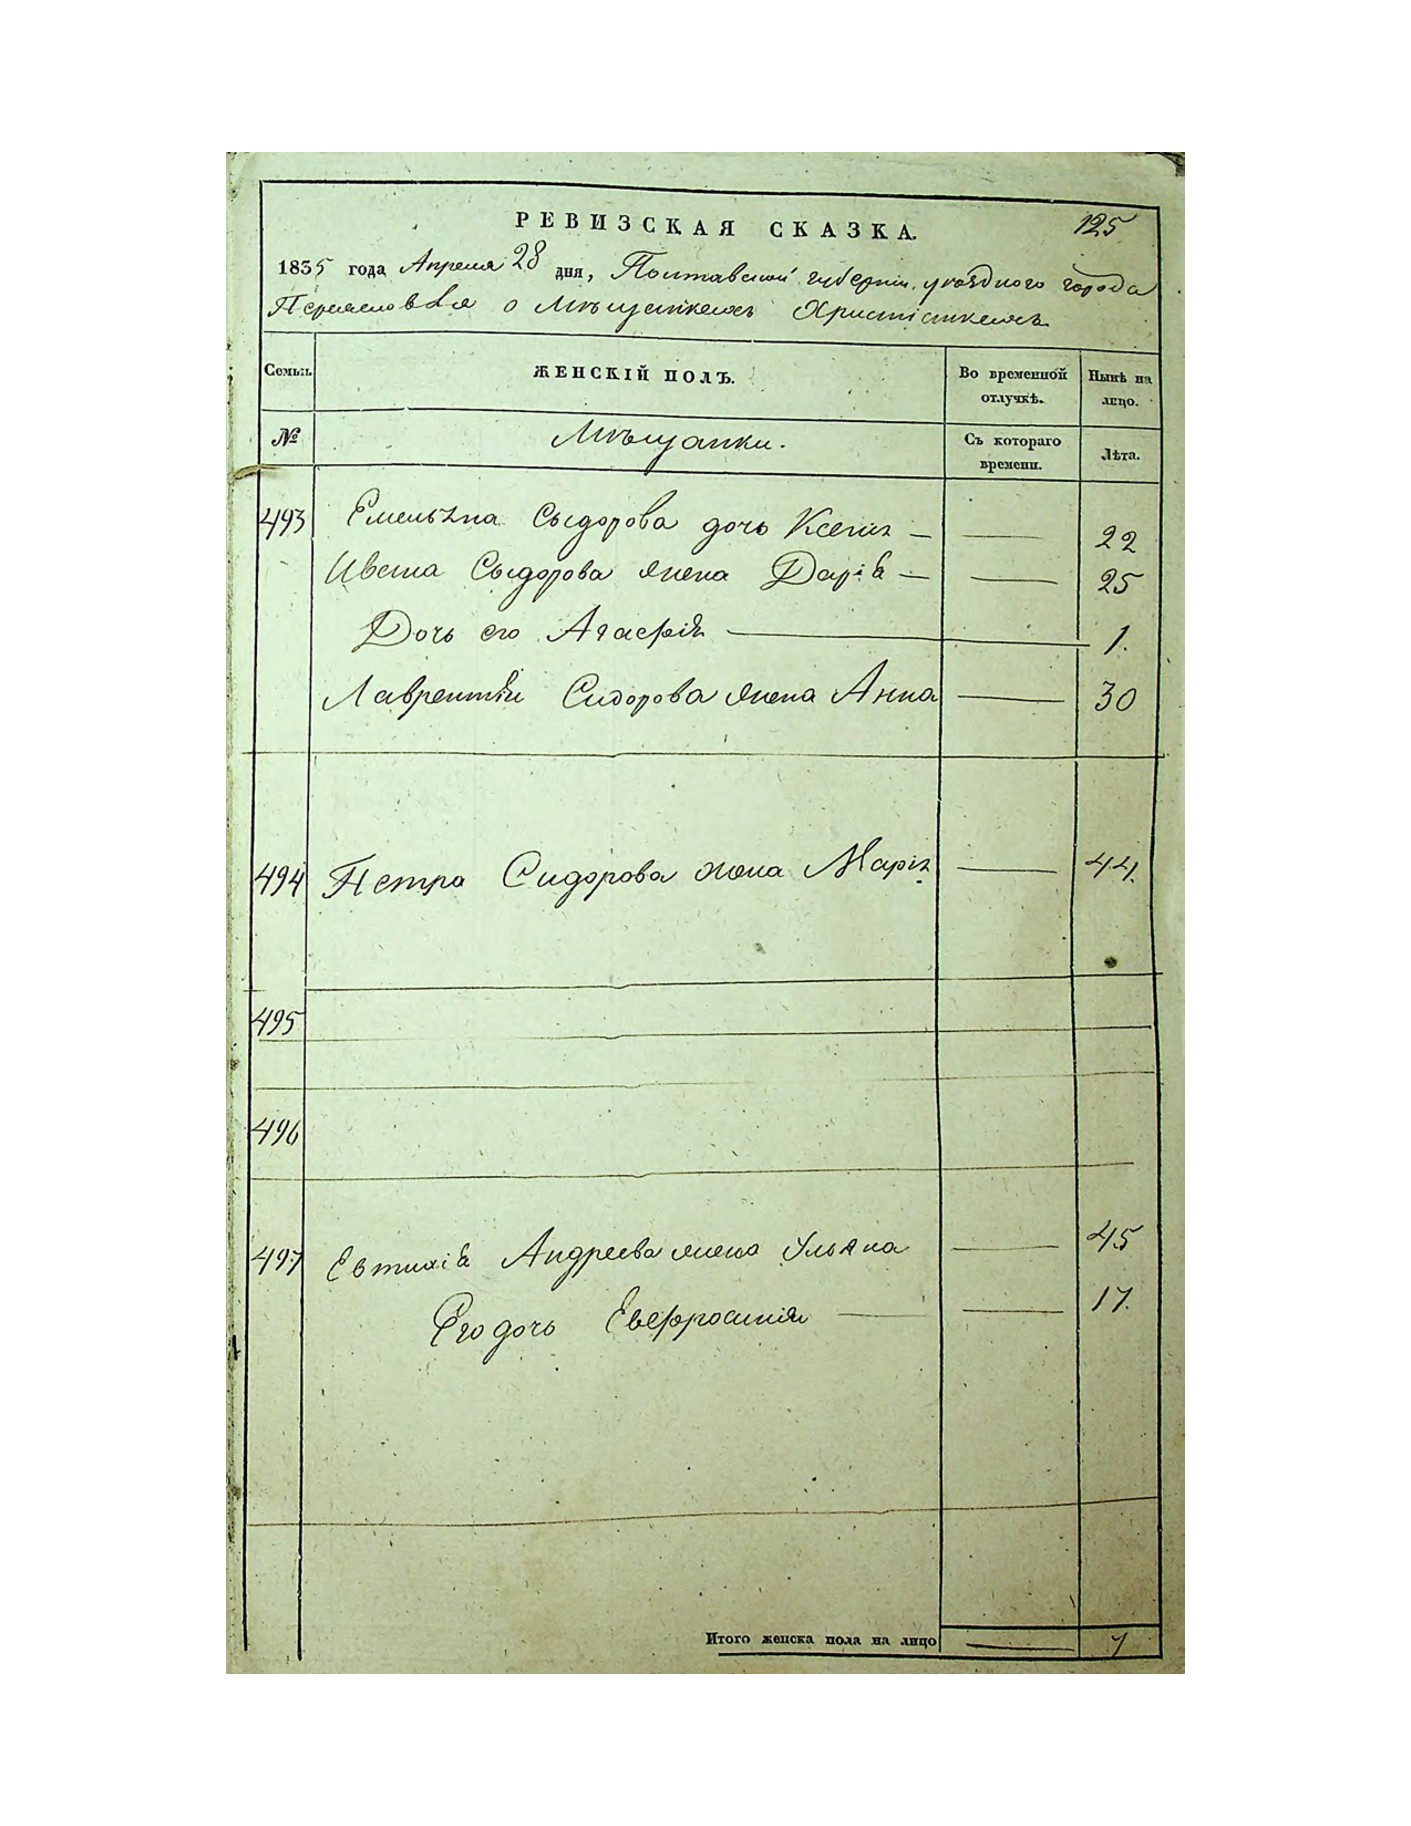 РЕВИЗСКАЯ СКАЗКА.
125
1835 года Апреля 28 дня, Полтавской губернии уѣздного города
Переяслова о Мѣщанкахъ Христіянкахъ
Семьи.
ЖЕНСКІЙ ПОЛЪ.
Во временной отлучкѣ.
Нынѣ на лицо.
№
Мѣщанки.
Съ котораго времени.
Лѣта.
493 Емельяна Сыдорова дочь Ксенія — — 22
Сыдорова жена Дарія — — 25
Дочь его Агафія — 1.
Лаврентія Сидорова жена Анна — 30
494 Петра Сидорова жена Марія — 44.
495
496
497 Евтихія Андреева жена Ульяна — 45
Его дочь Евфросинія — — 17.
Итого женска пола на лицо — 7